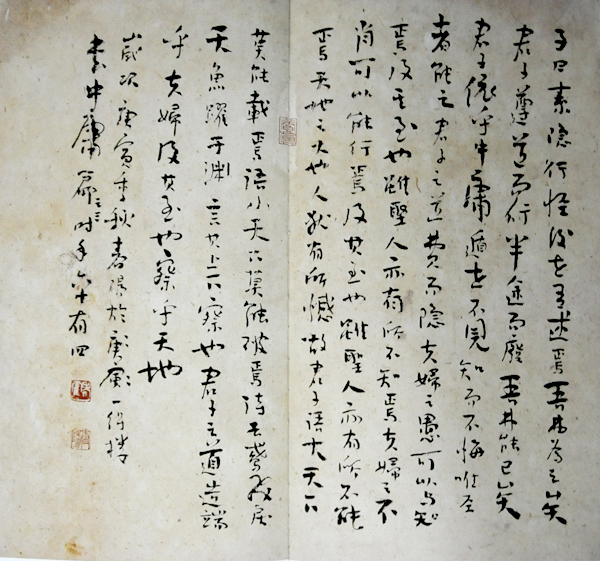 子曰素隐行怪後世有述焉吾弗為之矣
君子遵道而行半途而廢吾弗能已矣
君子依乎中庸遁世不見知而不悔唯圣
者能之君子之道費而隐夫婦之愚可以与知
焉及其至也雖聖人亦有所不知焉夫婦之不
肖可以能行焉及其至也雖聖人亦有所不能
焉天地之大也人猶有所憾故君子語大天下
莫能載焉語小天下莫能破焉詩云鳶飛戾
天魚躍于淵言其上下察也君子之道造端
乎夫婦及其至也察乎天地
歲次庚寅年秋春陽於
書中庸篇時年六十有四